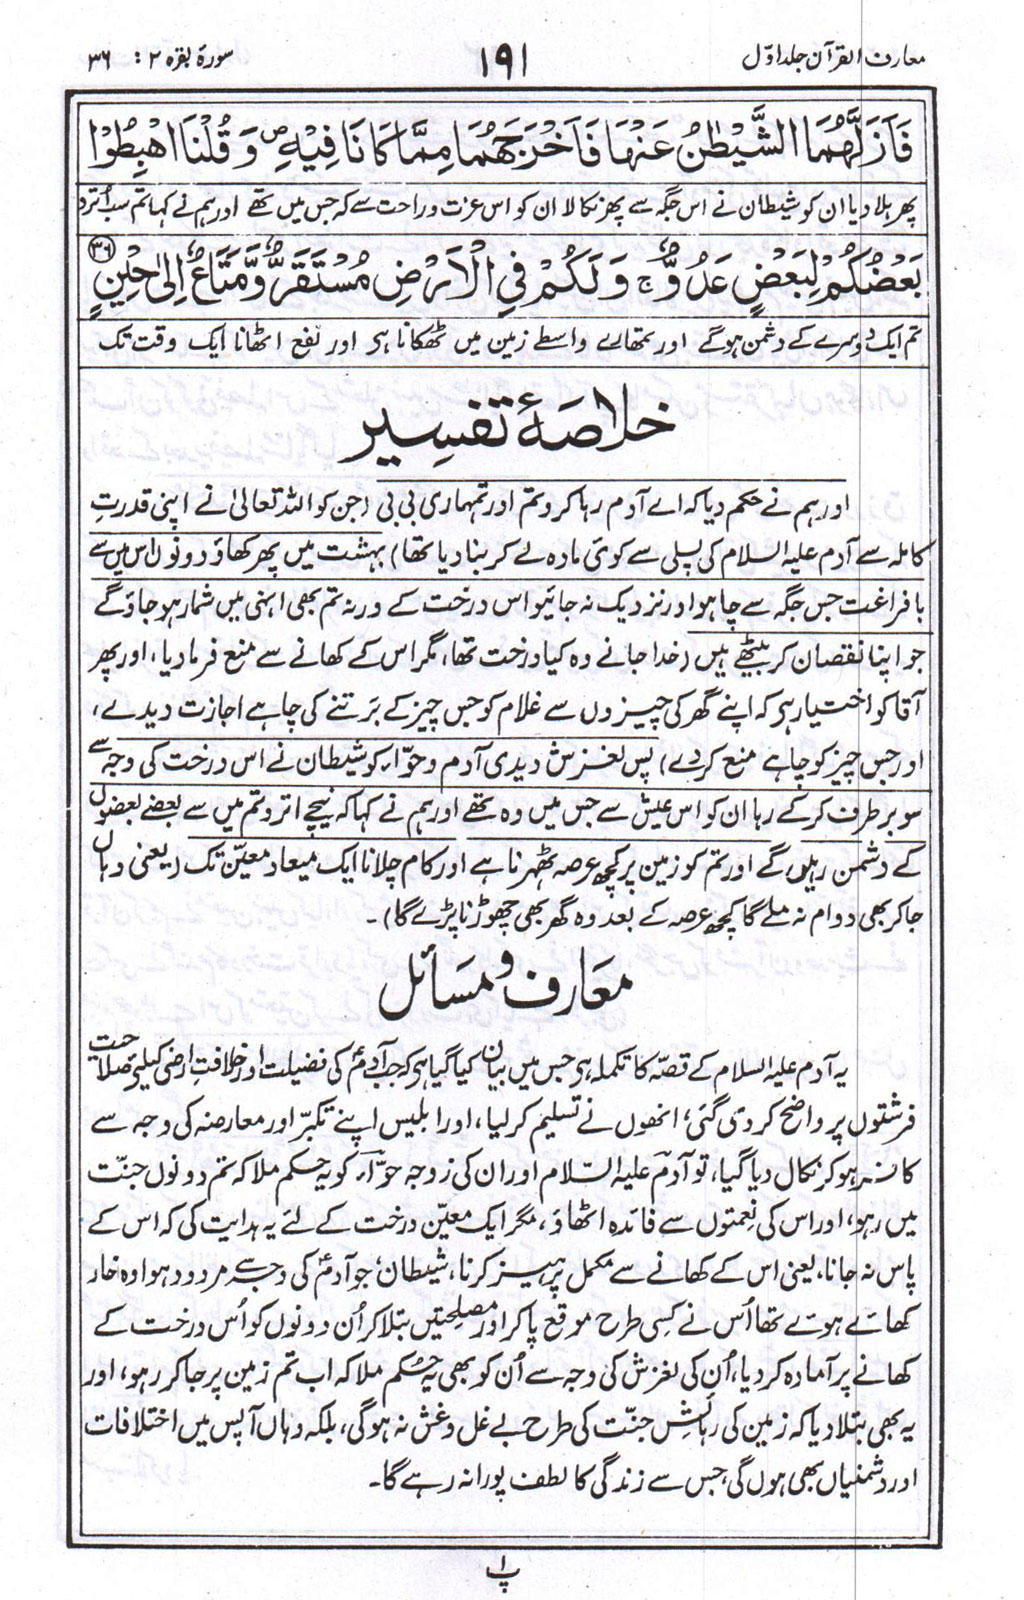 معارف القرآن جلد اوّل
۱۹۱
سورۃ بقرہ ۲ : ۳۶
فَاَزَلَّهُمَا الشَّيْطٰنُ عَنْهَا فَاَخْرَجَهُمَا مِمَّا كَانَا فِيْهِ ۖ وَقُلْنَا اهْبِطُوْا
پھر ہلا دیا ان کو شیطان نے اس جگہ سے پھر نکالا ان کو اس عزت و راحت سے کہ جس میں تھے اور ہم نے کہا تم سب اترو
بَعْضُكُمْ لِبَعْضٍ عَدُوٌّ ۚ وَلَكُمْ فِي الْاَرْضِ مُسْتَقَرٌّ وَّمَتَاعٌ اِلٰى حِيْنٍ ۳۶
تم ایک دوسرے کے دشمن ہوگے اور تمھارے واسطے زمین میں ٹھکانا ہی اور نفع اٹھانا ایک وقت تک
خلاصۂ تفسیر
اور ہم نے حکم دیا کہ اے آدم رہا کرو تم اور تمہاری بی بی (جن کو اللہ تعالیٰ نے اپنی قدرتِ
کاملہ سے آدم علیہ السلام کی پسلی سے کوئی مادہ لے کر بنا دیا تھا) بہشت میں پھر کھاؤ دونوں اس میں سے
بافراغت جس جگہ سے چاہو اور نزدیک نہ جائیو اس درخت کے ورنہ تم بھی انہی میں شمار ہو جاؤ گے
جو اپنا نقصان کر بیٹھے ہیں (خدا جانے وہ کیا درخت تھا، مگر اس کے کھانے سے منع فرما دیا، اور پھر
آقا کو اختیار ہی کہ اپنے گھر کی چیزوں سے غلام کو جس چیز کے برتنے کی چاہے اجازت دیدے،
اور جس چیز کو چاہے منع کر دے) پس لغزش دیدی آدم و حوّاء کو شیطان نے اس درخت کی وجہ سے
سو برطرف کر کے رہا ان کو اس عیش سے جس میں وہ تھے اور ہم نے کہا کہ نیچے اترو تم میں سے بعضے بعضوں
کے دشمن رہیں گے اور تم کو زمین پر کچھ عرصہ ٹھہرنا ہے اور کام چلانا ایک میعاد معیّن تک (یعنی وہاں
جا کر بھی دوام نہ ملے گا کچھ عرصہ کے بعد وہ گھر بھی چھوڑنا پڑے گا)۔
معارف و مسائل
یہ آدم علیہ السلام کے قصّہ کا تکملہ ہی جس میں بیان کیا گیا ہی کہ جب آدمؑ کی فضیلت اور خلافتِ ارضی کیلئے صلاحیت
فرشتوں پر واضح کر دی گئی، انھوں نے تسلیم کر لیا، اور ابلیس اپنے تکبّر اور معارضہ کی وجہ سے
کافر ہو کر نکال دیا گیا، تو آدم علیہ السلام اور ان کی زوجہ حوّاء کو یہ حکم ملا کہ تم دونوں جنّت
میں رہو، اور اس کی نعمتوں سے فائدہ اٹھاؤ، مگر ایک معیّن درخت کے لئے یہ ہدایت کی کہ اس کے
پاس نہ جانا، یعنی اس کے کھانے سے مکمل پرہیز کرنا، شیطان جو آدمؑ کی وجہ سے مردود ہوا وہ خار
کھائے ہوئے تھا اُس نے کسی طرح موقع پا کر اور مصلحتیں بتلا کر اُن دونوں کو اُس درخت کے
کھانے پر آمادہ کر دیا، اُن کی لغزش کی وجہ سے اُن کو بھی یہ حکم ملا کہ اب تم زمین پر جا کر رہو، اور
یہ بھی بتلا دیا کہ زمین کی رہائش جنّت کی طرح بے غل و غش نہ ہوگی، بلکہ وہاں آپس میں اختلافات
اور دشمنیاں بھی ہوں گی، جس سے زندگی کا لطف پورا نہ رہے گا۔
پ ۱